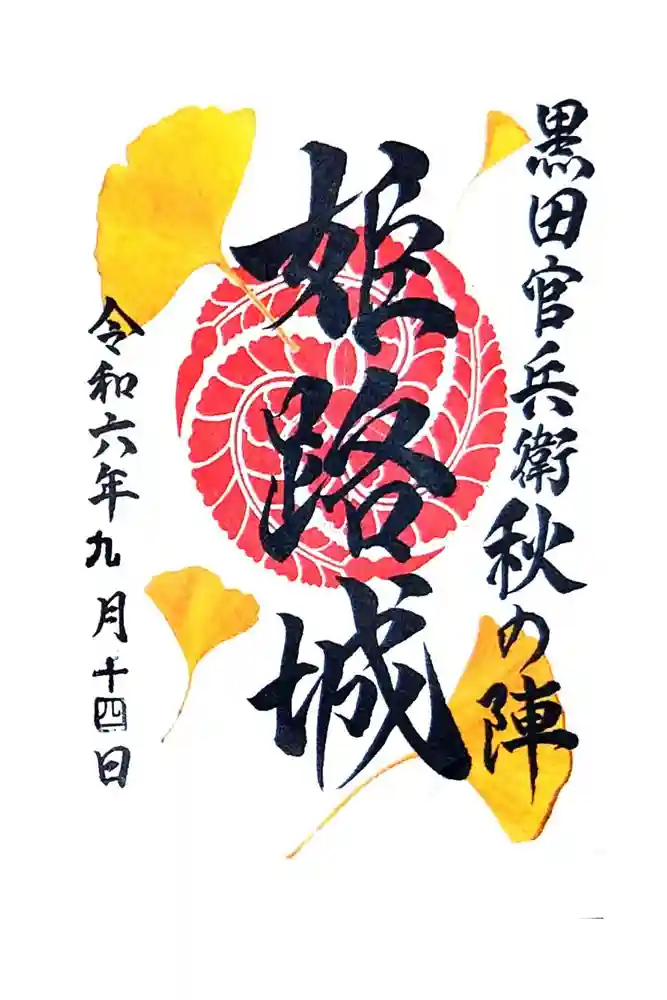 黒田官兵衛秋の陣
姫路城
令和六年九月十四日